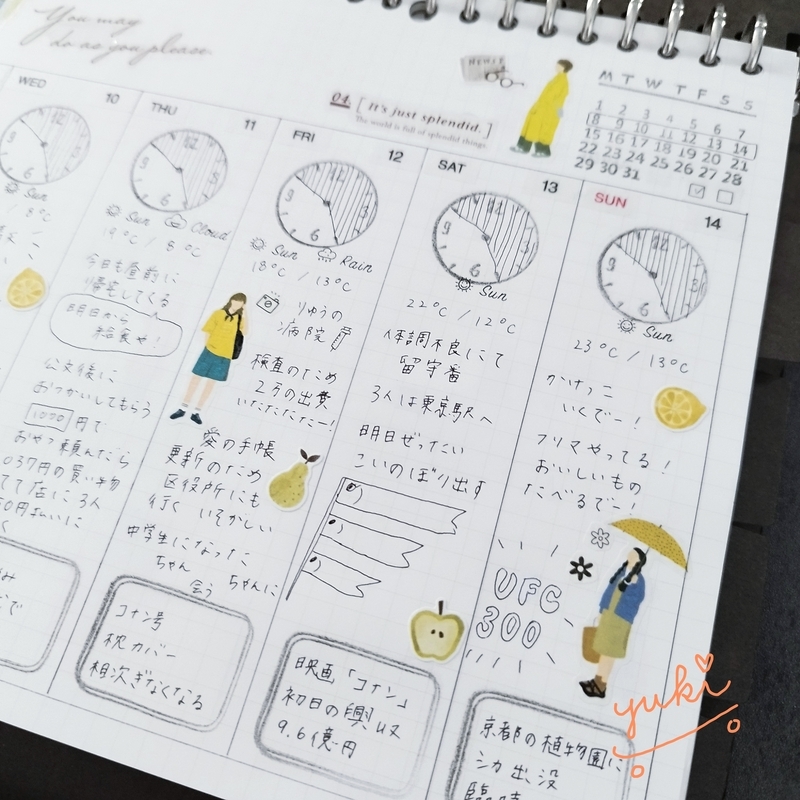 You may
do as you please.
NEWS
04. [ It's just splendid. ]
The world is full of splendid things.
M T W T F S S
1 2 3 4 5 6 7
8 9 10 11 12 13 14
15 16 17 18 19 20 21
22 23 24 25 26 27 28
29 30 31
WED 10
Sun
8℃
THU 11
Sun Cloud
19℃ / 8℃
今日も昼前に
帰宅してくる
明日から
給食や！
公文後に
おつかいしてもらう
1000円で
おやつ頼んだら
037円の買い物
店に3人
0円払いに
FRI 12
Sun Rain
18℃ / 13℃
りゅうの
病院
検査のため
2万の出費
いたたたたー！
愛の手帳
更新のため
区役所にも
行く いそがしい
中学生になった
ちゃん ちゃんに
会う
コナン号
枕カバー
相次ぎなくなる
SAT 13
Sun
22℃ / 12℃
体調不良にて
留守番
3人は東京駅へ
明日ぜったい
こいのぼり出す
映画「コナン」
初日の興収
9.6億円
SUN 14
Sun
23℃ / 13℃
かけっこ
いくでー！
フリマやってる！
おいしいもの
たべるでー！
UFC
300
京都の植物園に
シカ出没
臨時
yuki